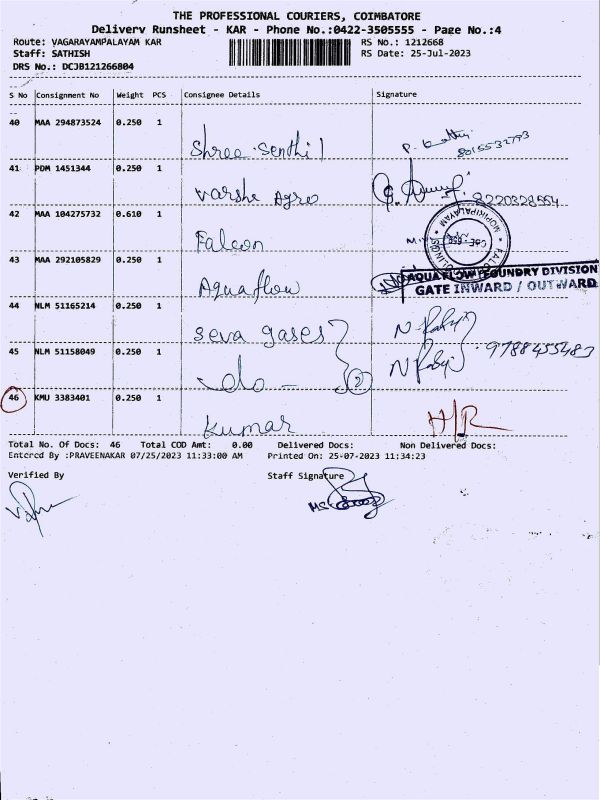 THE PROFESSIONAL COURIERS, COIMBATORE
Delivery Runsheet - KAR - Phone No.:0422-3505555 - Page No.:4
Route: VAGARAYAMPALAYAM KAR RS No.: 1212668
Staff: SATHISH RS Date: 25-Jul-2023
DRS No.: DCJB121266804
S No Consignment No Weight PCS Consignee Details Signature
40 MAA 294873524 0.250 1 Shree Senthil 8015532793
41 PDM 1451344 0.250 1 Varshe Agro 8220328554
42 MAA 104275732 0.610 1 Falcon
43 MAA 292105829 0.250 1 Aquaflow
AQUAFLOW (FOUNDRY DIVISION
GATE INWARD / OUTWARD
44 NLM 51165214 0.250 1 seva gases
45 NLM 51158049 0.250 1 - do - 2 9788455483
46 KMU 3383401 0.250 1 kumar H/R
Total No. Of Docs: 46 Total COD Amt: 0.00 Delivered Docs: Non Delivered Docs:
Entered By :PRAVEENAKAR 07/25/2023 11:33:00 AM Printed On: 25-07-2023 11:34:23
Verified By Staff Signature